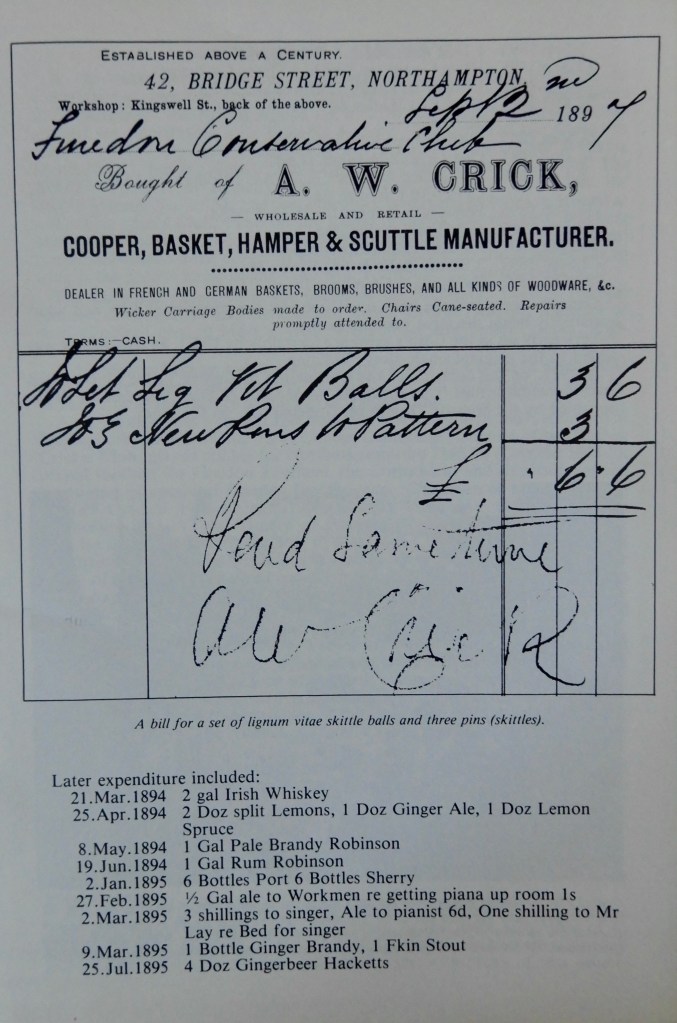 ESTABLISHED ABOVE A CENTURY.
42, BRIDGE STREET, NORTHAMPTON,
Workshop: Kingswell St., back of the above.
Sept 2nd 1897
Finedon Conservative Club
Bought of A. W. CRICK,
— WHOLESALE AND RETAIL —
COOPER, BASKET, HAMPER & SCUTTLE MANUFACTURER.
DEALER IN FRENCH AND GERMAN BASKETS, BROOMS, BRUSHES, AND ALL KINDS OF WOODWARE, &c.
Wicker Carriage Bodies made to order. Chairs Cane-seated. Repairs
promptly attended to.
TERMS:—CASH.
To Set Lig Vit Balls. 3 6
To 3 New Pins to Pattern 3
£ " 6 " 6
Paid Same time
AW Crick
A bill for a set of lignum vitae skittle balls and three pins (skittles).
Later expenditure included:
21.Mar.1894 2 gal Irish Whiskey
25.Apr.1894 2 Doz split Lemons, 1 Doz Ginger Ale, 1 Doz Lemon
Spruce
8.May.1894 1 Gal Pale Brandy Robinson
19.Jun.1894 1 Gal Rum Robinson
2.Jan.1895 6 Bottles Port 6 Bottles Sherry
27.Feb.1895 ½ Gal ale to Workmen re getting piana up room 1s
2.Mar.1895 3 shillings to singer, Ale to pianist 6d, One shilling to Mr
Lay re Bed for singer
9.Mar.1895 1 Bottle Ginger Brandy, 1 Fkin Stout
25.Jul.1895 4 Doz Gingerbeer Hacketts